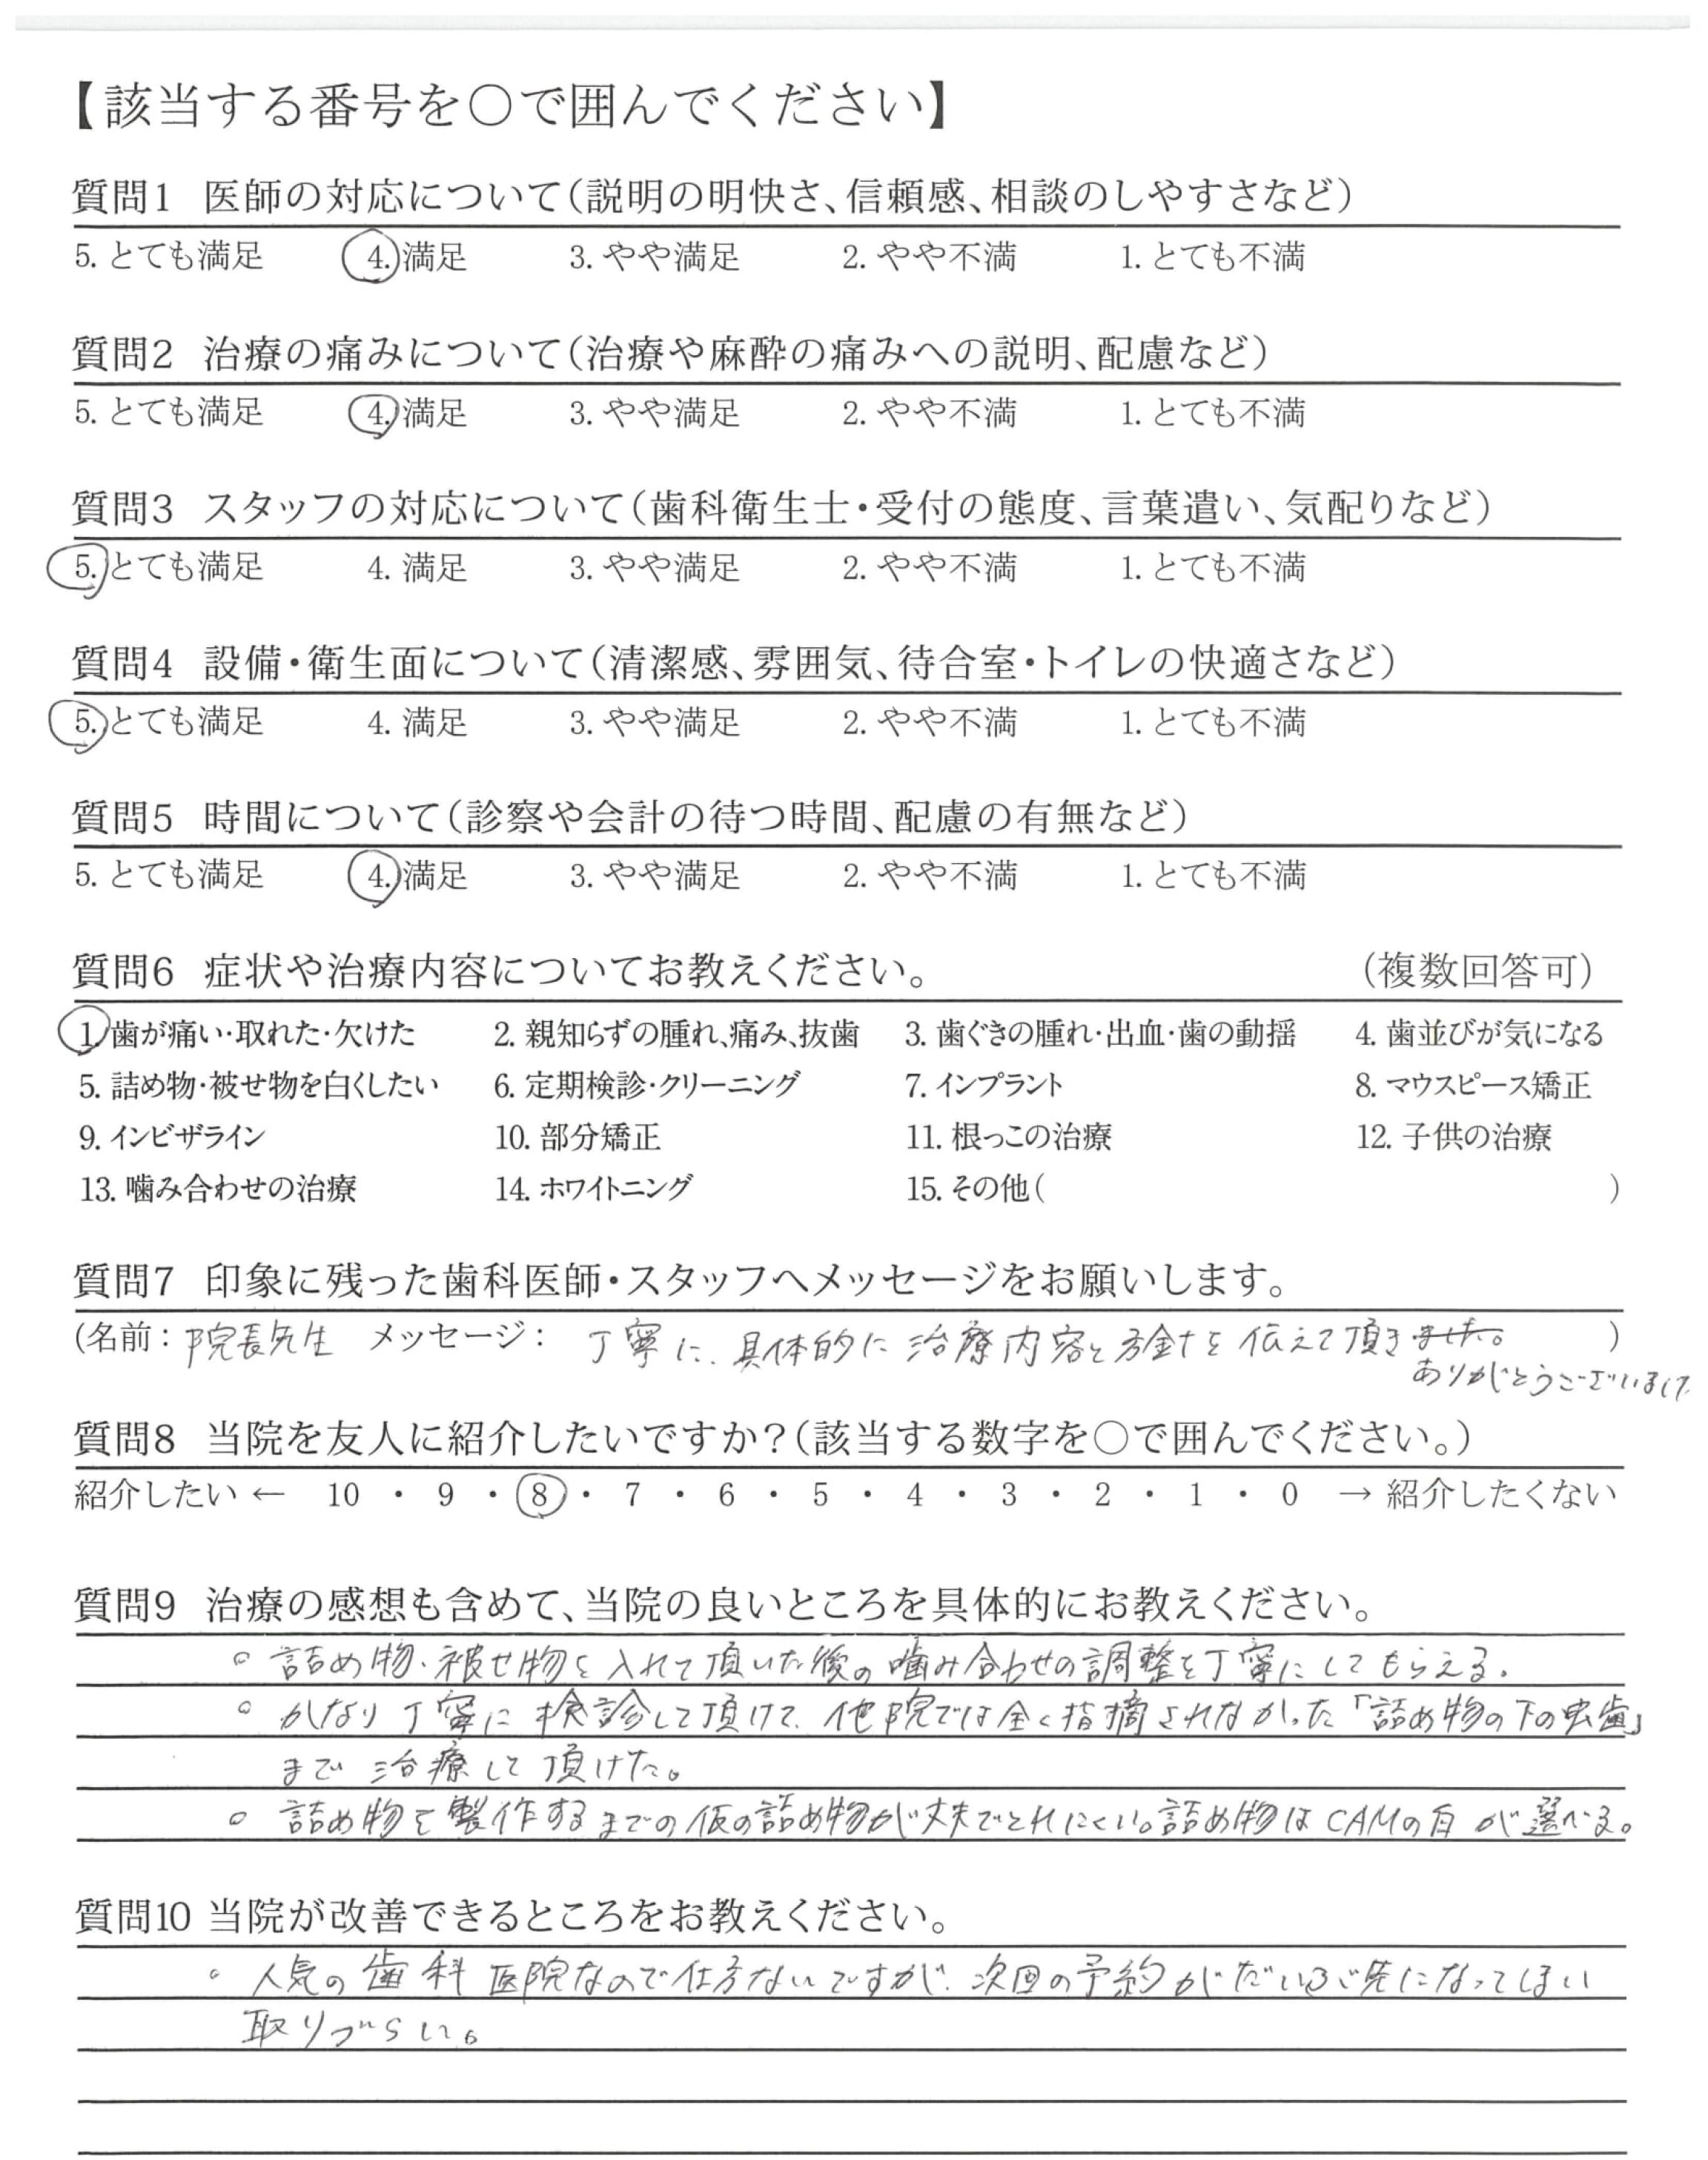 【該当する番号を○で囲んでください】
質問1 医師の対応について(説明の明快さ、信頼感、相談のしやすさなど)
5. とても満足 4. 満足 3. やや満足 2. やや不満 1. とても不満
質問2 治療の痛みについて(治療や麻酔の痛みへの説明、配慮など)
5. とても満足 4. 満足 3. やや満足 2. やや不満 1. とても不満
質問3 スタッフの対応について(歯科衛生士・受付の態度、言葉遣い、気配りなど)
5. とても満足 4. 満足 3. やや満足 2. やや不満 1. とても不満
質問4 設備・衛生面について(清潔感、雰囲気、待合室・トイレの快適さなど)
5. とても満足 4. 満足 3. やや満足 2. やや不満 1. とても不満
質問5 時間について(診察や会計の待つ時間、配慮の有無など)
5. とても満足 4. 満足 3. やや満足 2. やや不満 1. とても不満
質問6 症状や治療内容についてお教えください。 (複数回答可)
1. 歯が痛い・取れた・欠けた 2. 親知らずの腫れ、痛み、抜歯 3. 歯ぐきの腫れ・出血・歯の動揺 4. 歯並びが気になる
5. 詰め物・被せ物を白くしたい 6. 定期検診・クリーニング 7. インプラント 8. マウスピース矯正
9. インビザライン 10. 部分矯正 11. 根っこの治療 12. 子供の治療
13. 噛み合わせの治療 14. ホワイトニング 15. その他( )
質問7 印象に残った歯科医師・スタッフへメッセージをお願いします。
(名前: 院長先生 メッセージ: 丁寧に、具体的に治療内容と方針を伝えて頂きました。 )
ありがとうございました
質問8 当院を友人に紹介したいですか?(該当する数字を○で囲んでください。)
紹介したい ← 10 ・ 9 ・ 8 ・ 7 ・ 6 ・ 5 ・ 4 ・ 3 ・ 2 ・ 1 ・ 0 → 紹介したくない
質問9 治療の感想も含めて、当院の良いところを具体的にお教えください。
○ 詰め物・被せ物を入れて頂いた後の噛み合わせの調整を丁寧にしてもらえる。
○ かなり丁寧に検診して頂けて、他院では全く指摘されなかった「詰め物の下の虫歯」
まで治療して頂けた。
○ 詰め物を製作するまでの仮の詰め物が丈夫でとれにくい。詰め物はCAMの白が選べる。
質問10 当院が改善できるところをお教えください。
○ 人気の歯科医院なので仕方ないですが、次回の予約がだいぶ先になってしまい
取りづらい。